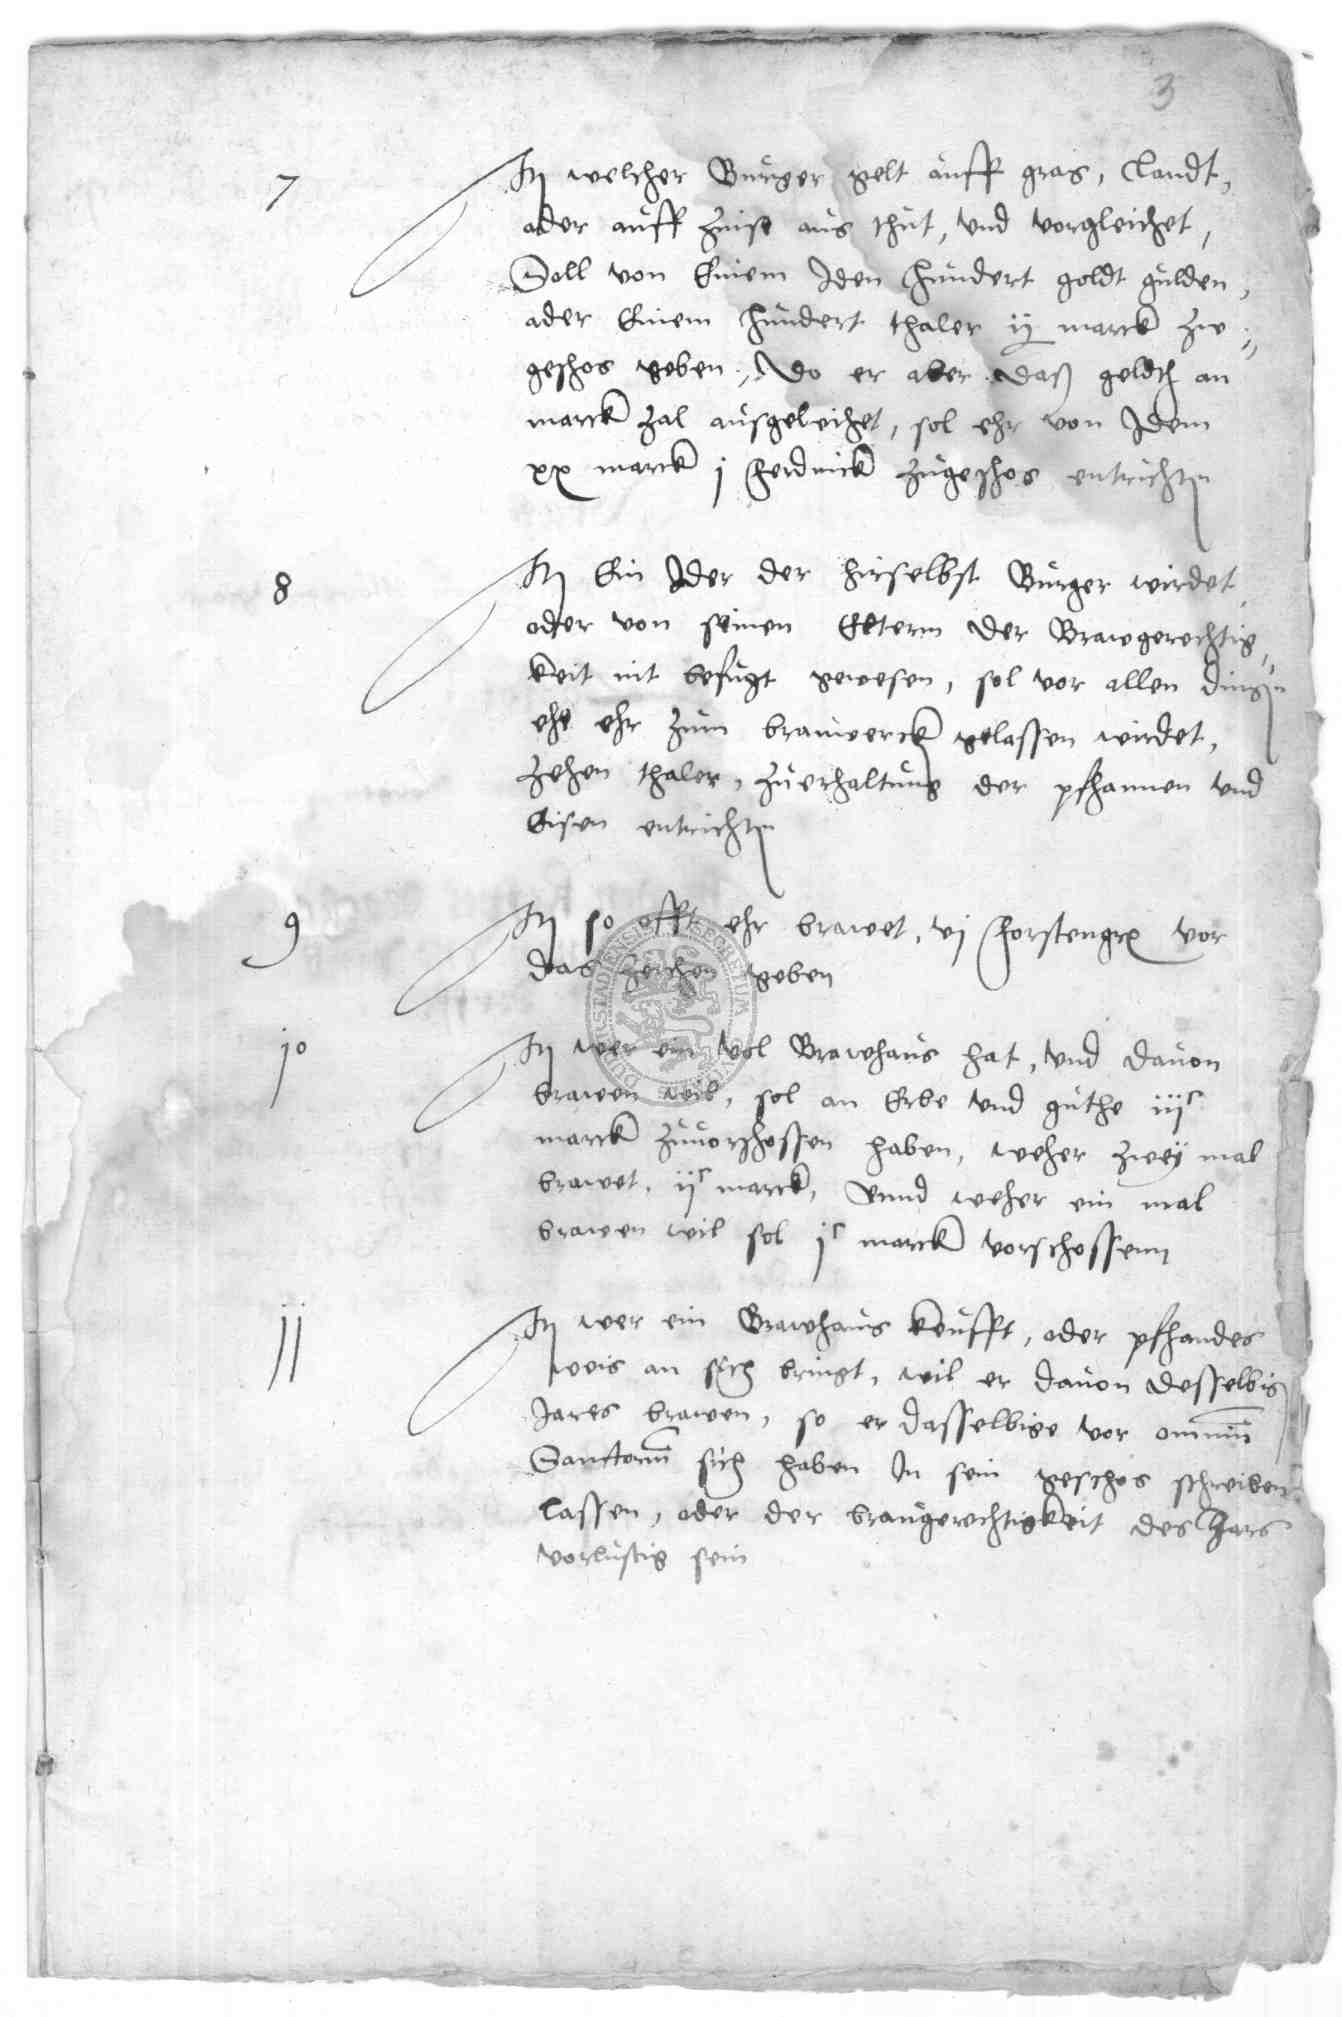 3
7
Itm welcher Burger gelt auff gras, Landt,
ader auff Zinse aus thut, vnd vorgleichet,
Soll von Einem Iden Hundert goldt gulden,
ader Einem hundert thaler ij marck zw
geschos geben, Do er aber das geldt an
marck zal ausgeleichet, sol ehr von Idem
xx marck j Ferdnick zugeschos entrichtn
8
Itm Ein Ider der hirselbst Burger wirdet
oder von seinen Eltern der Brawgerechtig
keit nit befugt gewesen, sol vor allen dingn
ehe ehr zum brauwerck gelassen wirdet,
Zehen thaler, zuerhaltung der pfhannen vnd
Eisen entrichtn
9
Itm so offt ehr brawet, vj Forstengr vor
das Zeichen geben
j0
Itm wer ein vol Brawhaus hat, vnd dauon
brawen wil, sol an Erbe vnd guthe iijc
marck zuuorschossen haben, weher zweÿ mal
brawet, ijc marck, Vnnd weher ein mal
brawen wil sol jc marck vorschossenn
jj
Itm wer ein Brawhaus keufft, oder pfhandes
weis an sich bringt, wil er dauon desselbign
Jares brawen, so er dasselbige vor omnium
Sanctorum sich haben In sein geschos schreiben
lassen, oder der braugerechtigkeit des Jars
vorlustig sein